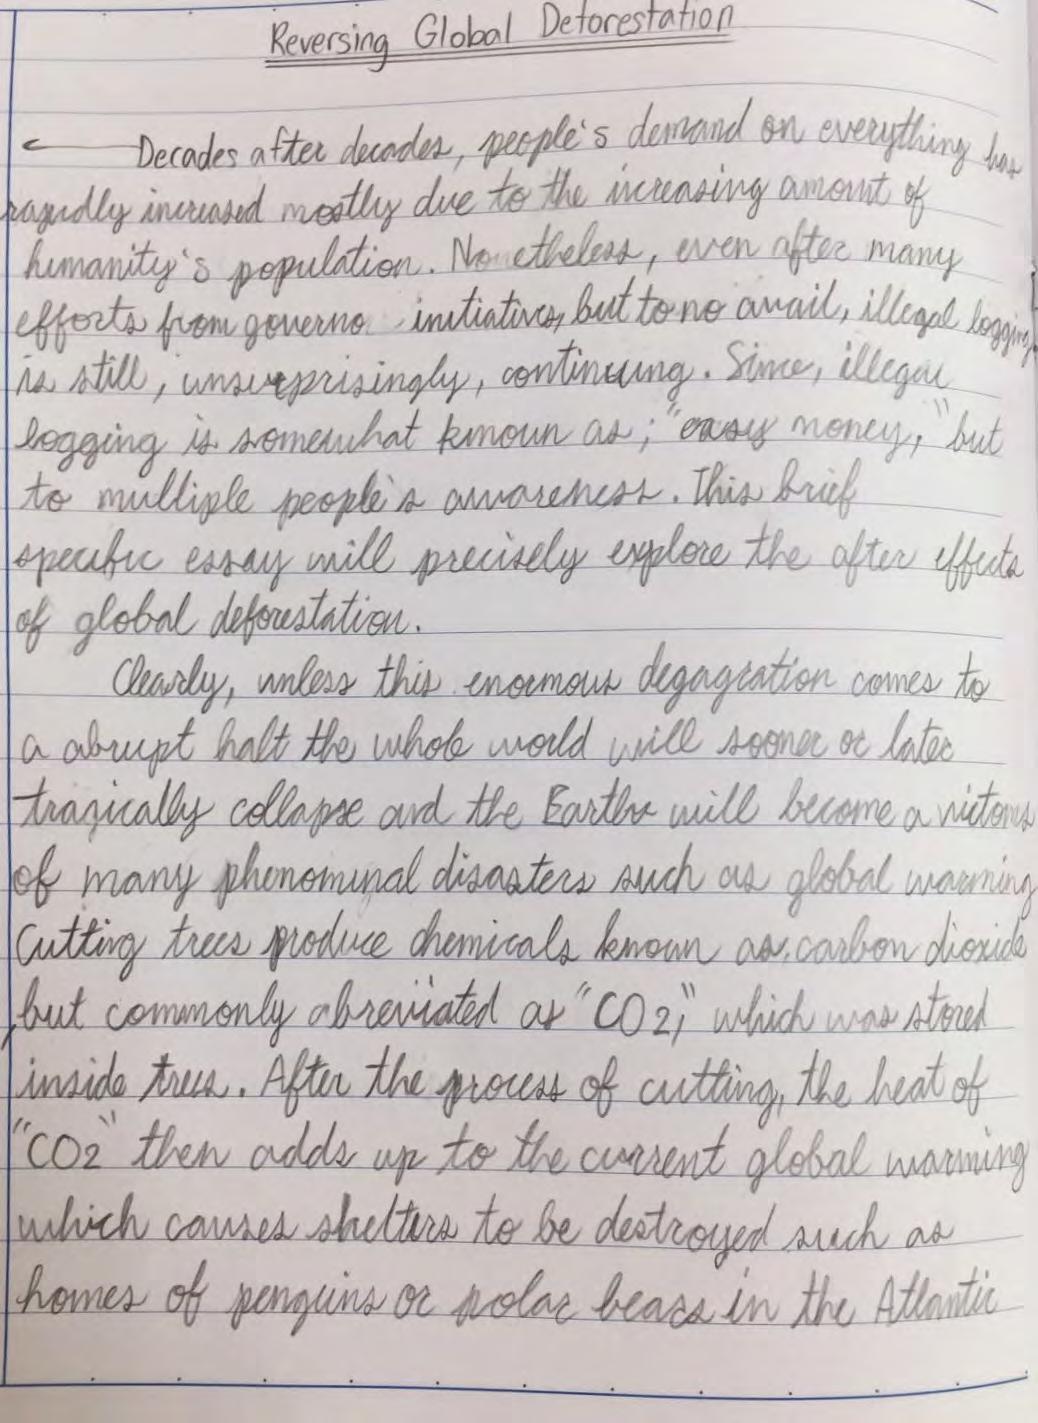 Reversing Global Deforestation
Decades after decades, people's demand on everything has
rapidly increased mostly due to the increasing amount of
humanity's population. Nonetheless, even after many
efforts from governo initiatives, but to no avail, illegal logging
is still, unsurprisingly, continuing. Since, illegal
logging is somewhat known as; "easy money," but
to multiple people's awareness. This brief
specific essay will precisely explore the after effects
of global deforestation.
Clearly, unless this enormous degagration comes to
a abrupt halt the whole world will sooner or later
tragically collapse and the Earth will become a victoms
of many phenominal disasters such as global warming
Cutting trees produce chemicals known as, carbon dioxide
,but commonly abreviated as "CO2," which was stored
inside trees. After the process of cutting, the heat of
"CO2" then adds up to the current global warming
which causes shelters to be destroyed such as
homes of penguins or polar bears in the Atlantic